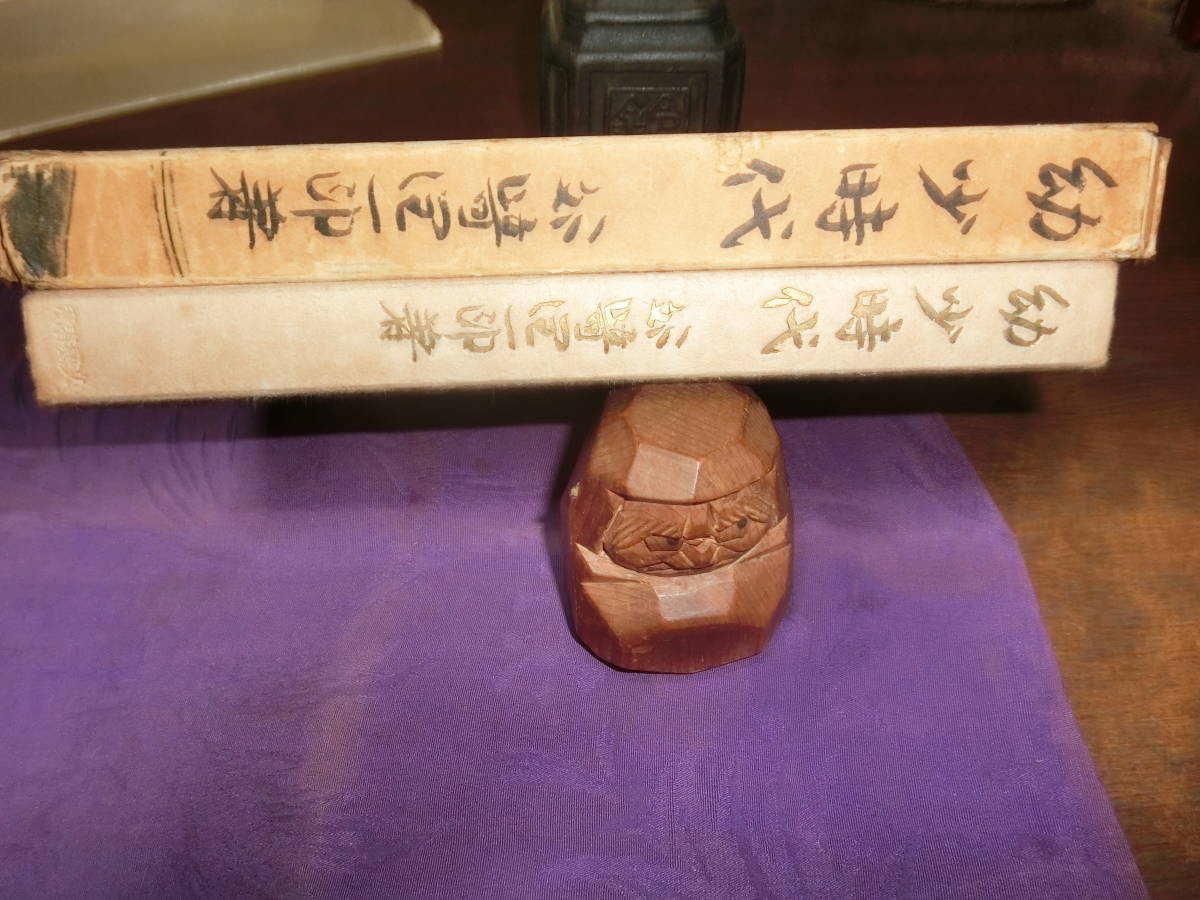 幼少時代 谷崎潤一郎著
幼少時代 谷崎潤一郎著